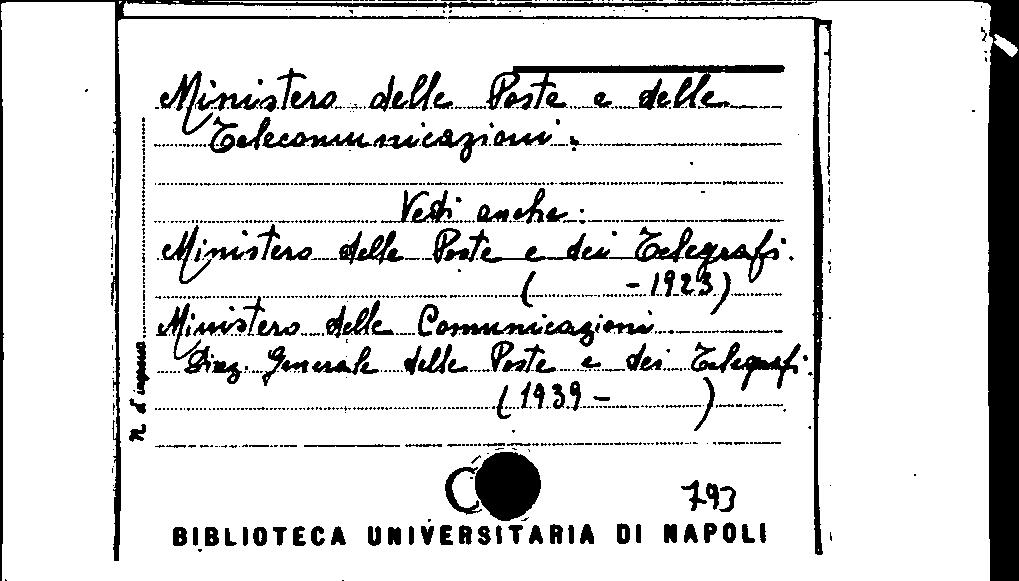 Ministero delle Poste e delle
Telecomunicazioni.
Vedi anche:
Ministero delle Poste e dei Telegrafi.
( -1923)
Ministero delle Comunicazioni.
Direz. Generale delle Poste e dei Telegrafi.
(1939- )
N. d'ingresso
C
793
BIBLIOTECA UNIVERSITARIA DI NAPOLI